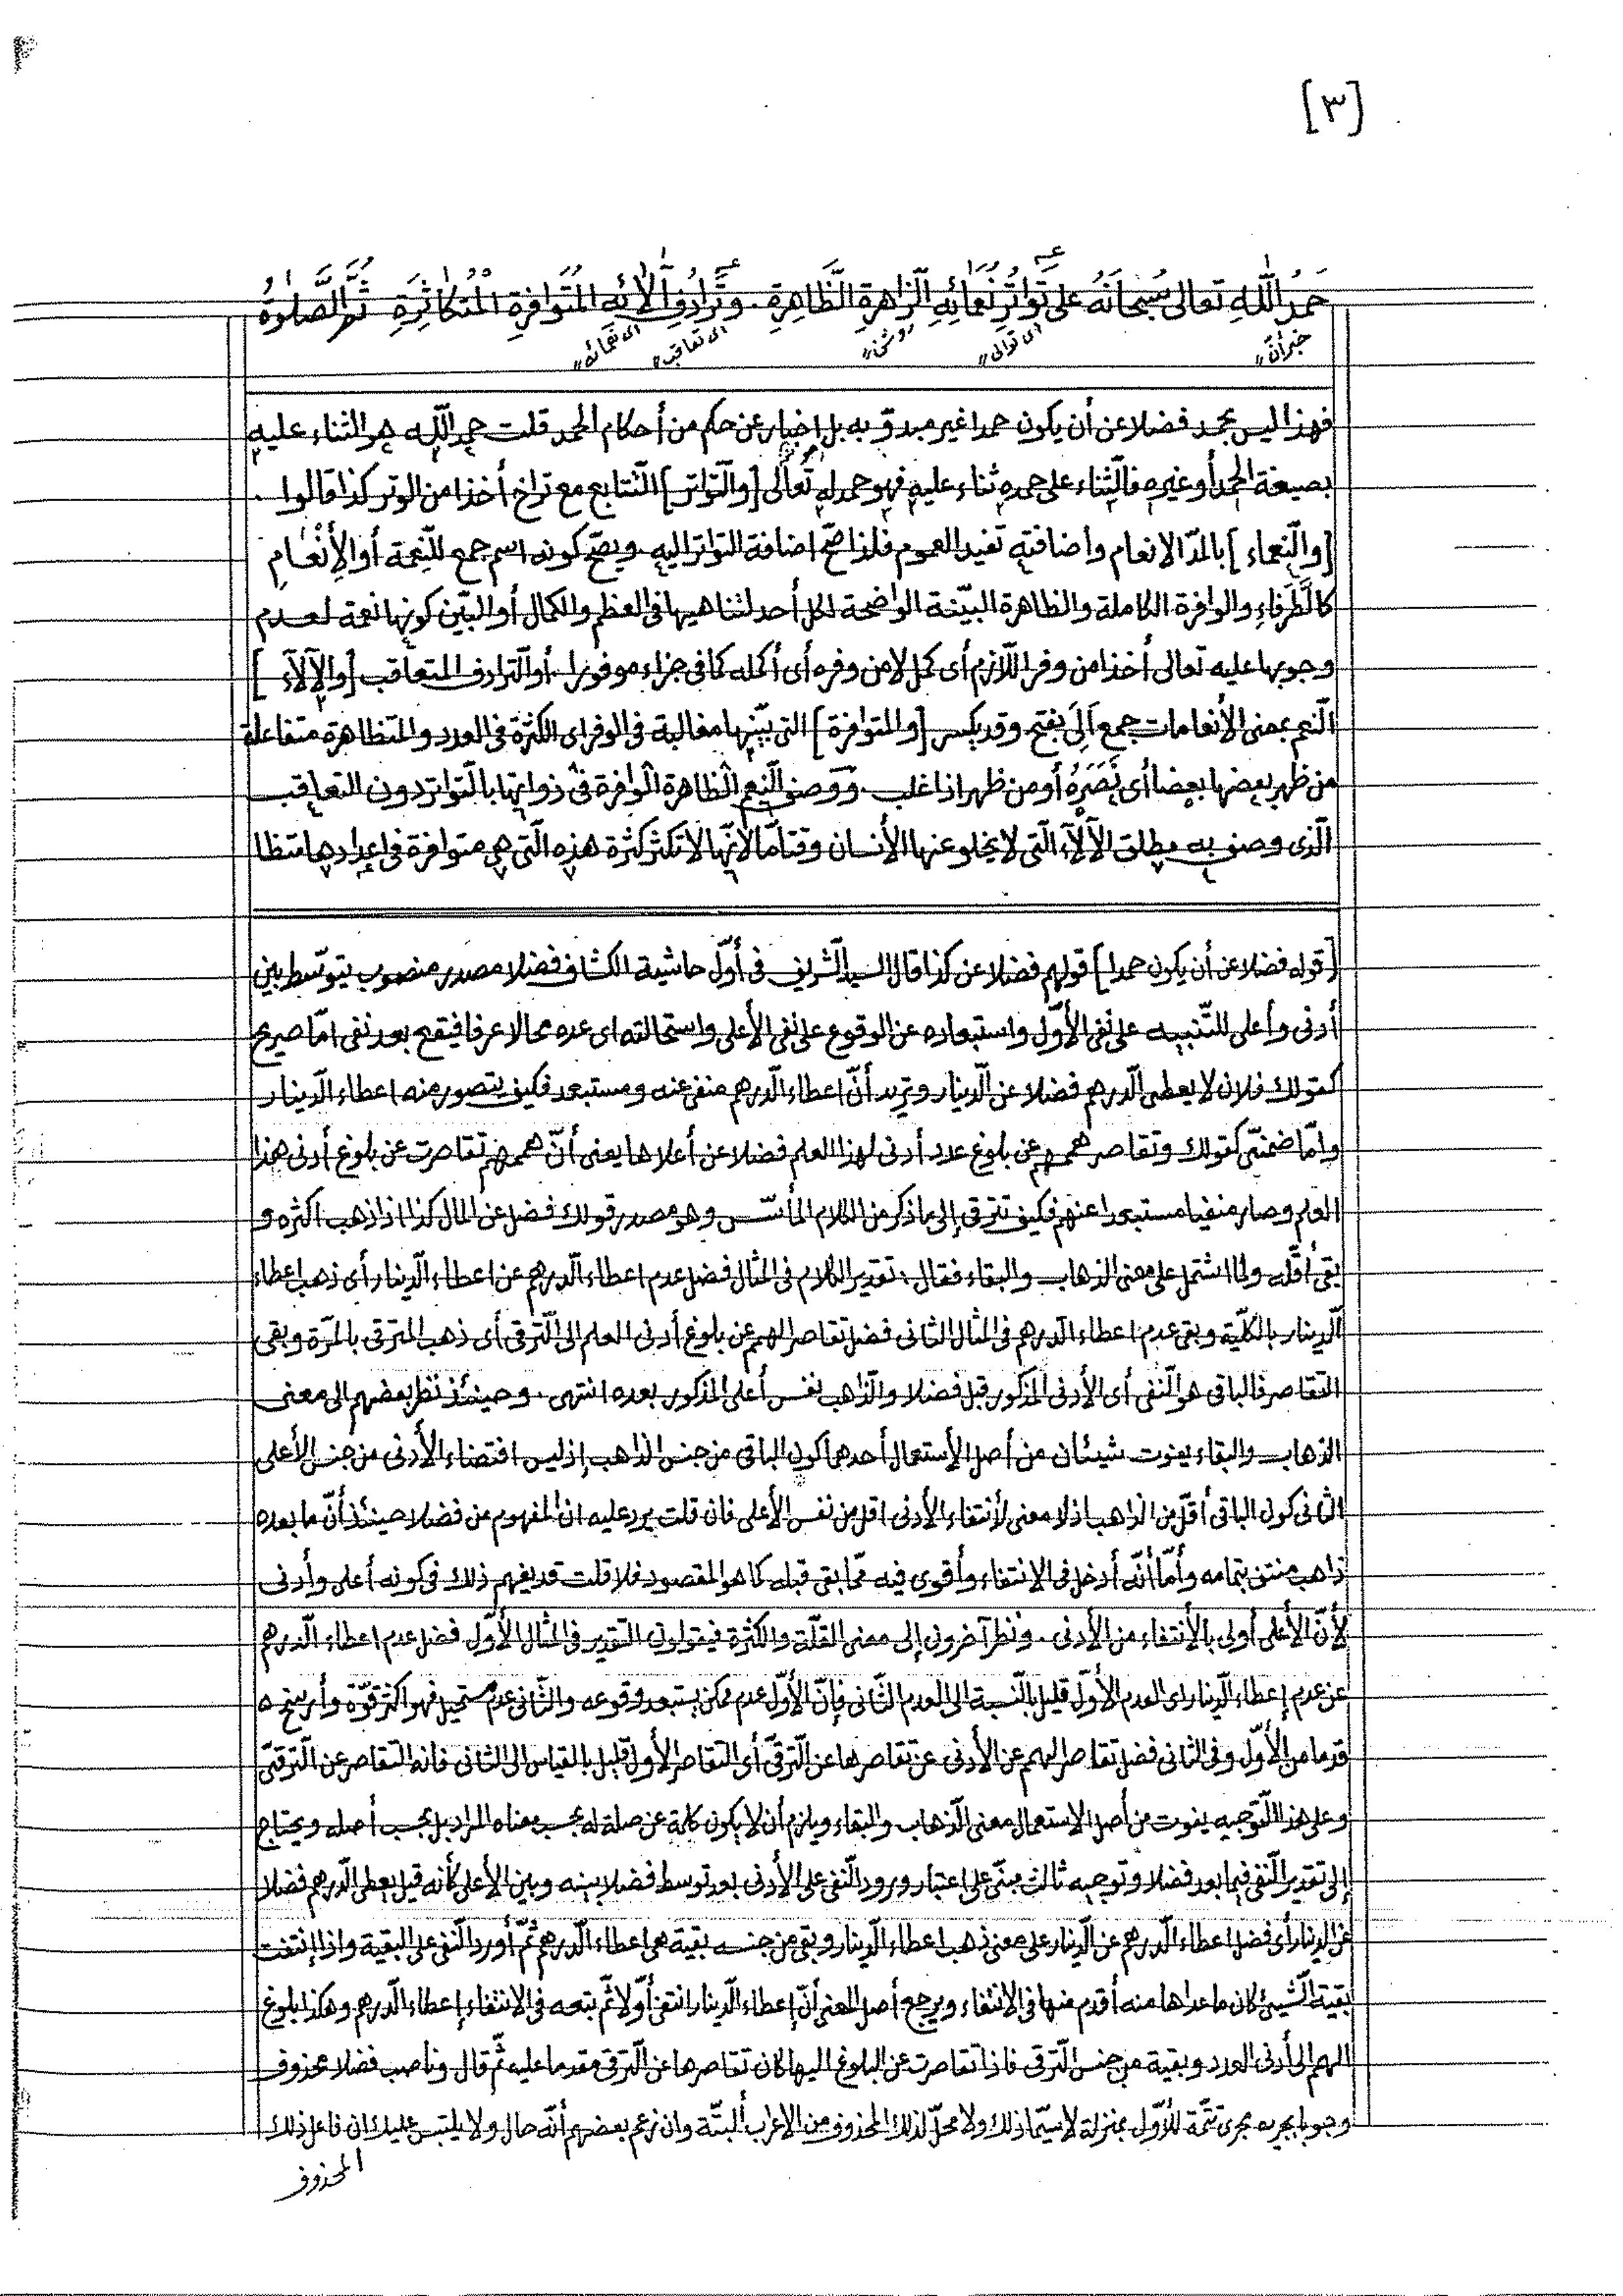 [٣]
حَمْدُ اللّٰهِ تعالى سُبحانَهُ على تَواتُرِ نَعمائِهِ الزّاهرةِ الظّاهِرةِ . وتَرادُفِ آلائِهِ المُتَوافِرةِ المُتكاثِرَةِ ثُمَّ الصَّلٰوةُ
خبر أنّ // اى توالى // روشن // اى تعاقب // اى نعمائه //
فهذا ليس بحمد فضلا عن أن يكون حمدا غير مبدوّ به بل اخبار عن حكم من أحكام الحمد قلت حمد اللّه هو الثناء عليه
بصيغة الحمد أو غيره فالثّناء على حمده ثناء عليه فهو حمد له تعالى [والتّواتر] التّتابع مع تراخ أخذا من الوتر كذا قالوا .
[والنّعماء] بالمدّ الانعام وأضافته تفيد العموم فلذا صحّ اضافة التواتر اليه . ويصحّ كونه اسم جمع للنّعمة أو الأِنْعامِ
كالطَّرفاءِ والوافرة الكاملة والظاهرة البيّنة الواضحة لكل أحد لتناهيها فى العظم والكمال أو البيّن كونها نعمة لعدم
وجوبها عليه تعالى أخذا من وفر اللّازم أى كمل لا من وفره أى أكمله كما فى جزاء موفورا . أو التّرادف المتعاقب [والآلآء]
النّعم بمعنى الأنعامات جمع اَلَىً بفتح وقد يكسر [والمتوافرة] التى بيّنها مغالبة فى الوفر اى الكثرة فى العدد والمتظاهرة متفاعلة
من ظهر بعضها بعضا أى نَصَرَهُ أو من ظهر اذا غلب . ووصف النّعم الظاهرة الوافرة فى ذواتها بالتّواتر دون التعاقب
الّذى وصف به مطلق الآلآء الّتى لا يخلو عنها الأنسان وقتامّا لأنّها لا تكثر كثرة هذه الّتى هى متوافرة فى اعدادها متظا
[قوله فضلا عن أن يكون حمدا] قولهم فضلا عن كذا قال السيد الشّريف فى أوّل حاشية الكشاف فضلا مصدر منصوب يتوسّط بين
أدنى وأعلى للتّنبيه على نفى الأوّل واستبعاده عن الوقوع على نفى الأعلى واستحالته اى عده محالا عرفا فيقع بعد نفى امّا صريح
كقولك فلان لا يعطى الدّرهم فضلا عن الدّينار وتريد أنّ اعطاء الدّرهم منفى عنه ومستبعد فكيف يتصور منه اعطاء الدّينار
وامّا ضمنىّ كقولك وتقاصر هممهم عن بلوغ عدد أدنى لهذا العلم فضلا عن أعلاها يعنى أنّ هممهم تقاصرت عن بلوغ أدنى هذا
العلم وصار منفيا مستبعدا عنهم فكيف تترقى إلى ما ذكر من الكلام وهو مصدر قولك فضل عن المال كذا اذا ذهب اكثره و
بقى أقلّه ولما اشتمل على معنى الذهاب والبقاء فقال : تقدير الكلام فى المثال فضل عدم اعطاء الدّرهم عن اعطاء الدّينار أى ذهب اعطاء
الّدينار بالكلّية وبقى عدم اعطاء الدّرهم فى المثال الثانى فضل تقاصر الهمم عن بلوغ أدنى العلم الى التّرقى أى ذهب المترقى بالمرّة وبقى
التقاصر فالباقى هو النّفى أى الأدنى المذكور قبل فضلا والذّاهب نفس أعلى المذكور بعده انتهى . وحينئذ نظر بعضهم الى معنى
الذهاب والبقاء يفوت شيئان من أصل الأستعمال أحدهما كون الباقى من جنس الذاهب إذ ليس اقتضاء الأدنى من جنس الأعلى
الثانى كون الباقى أقلّ من الذاهب اذ لا معنى لأنتفاء الأدنى اقل من نفس الأعلى فان قلت يرد عليه ان المفهوم من فضلا حينئذ أنّ ما بعده
ذاهب منتف بتمامه وأمّا أنّه أدخل فى الانتفاء وأقوى فيه ممّا بقى قبله كما هو المقصود فلا قلت قد يفهم ذلك فى كونه أعلى وأدنى
لأنّ الأعلى أولى بالأنتفاء من الأدنى . ونظر آخرون إلى معنى القلّة والكثرة فيقولون التقدير فى المثال الأوّل فضل عدم اعطاء الدّرهم
عن عدم إعطاء الدّينار اى العدم الأوّل قليل بالنّسبة الى العدم الثّانى فإنّ الأوّل عدم ممكن يستبعد وقوعه والثّانى عدم مستحيل فهو اكثر قوّة وأرسخ
قدما من الأوّل وفى الثانى فضل تقاصر الهمم عن الأدنى عن تقاصرها عن التّرقّى أى التقاصر الأول قليل بالقياس الى الثانى فانه التقاصر عن التّرقّى
وعلى هذا التّوجيه يفوت من أصل الاستعمال معنى الذّهاب والبقاء ويلزم أن لا يكون كلمة عن صلة له بحسب معناه المراد بل بحسب أصله ويحتاج
إلى تقدير النّفى فيما بعد فضلا وتوجيه ثالث مبنىّ على اعتبار ورود النّفى على الأدنى بعد توسط فضلا بينه وبين الأعلى كأنه قيل يعطى الدّرهم فضلا
عن الدينار أى فضل اعطاء الدّرهم عن الدّينار على معنى ذهب اعطاء الدّينار وبقى من جنسه بقية هى اعطاء الدّرهم ثمّ أورد النّفى على البقية واذا إنتفت
بقية الشّيئ كان ما عداها منه أقدم منها فى الانتفاء ويرجع أصل المعنى أنّ إعطاء الدّينار انتفى أوّلا ثمّ تبعه فى الانتفاء إعطاء الدّرهم وهكذا بلوغ
الهمم الى أدنى العدد وبقية من جنس التّرقى فاذا تقاصرت عن البلوغ اليها كان تقاصرها عن التّرقى مقدما عليه ثمّ قال وناصب فضلا محذوف
وجوبا يجريه مجرى تتمّة للأوّل بمنزلة لاسيّما ذلك ولا محلّ لذلك المحذوف من الاعراب ألبتّة وان زعم بعضهم أنّه حال ولا يلتبس عليك ان فاعل ذلك
المحذوف